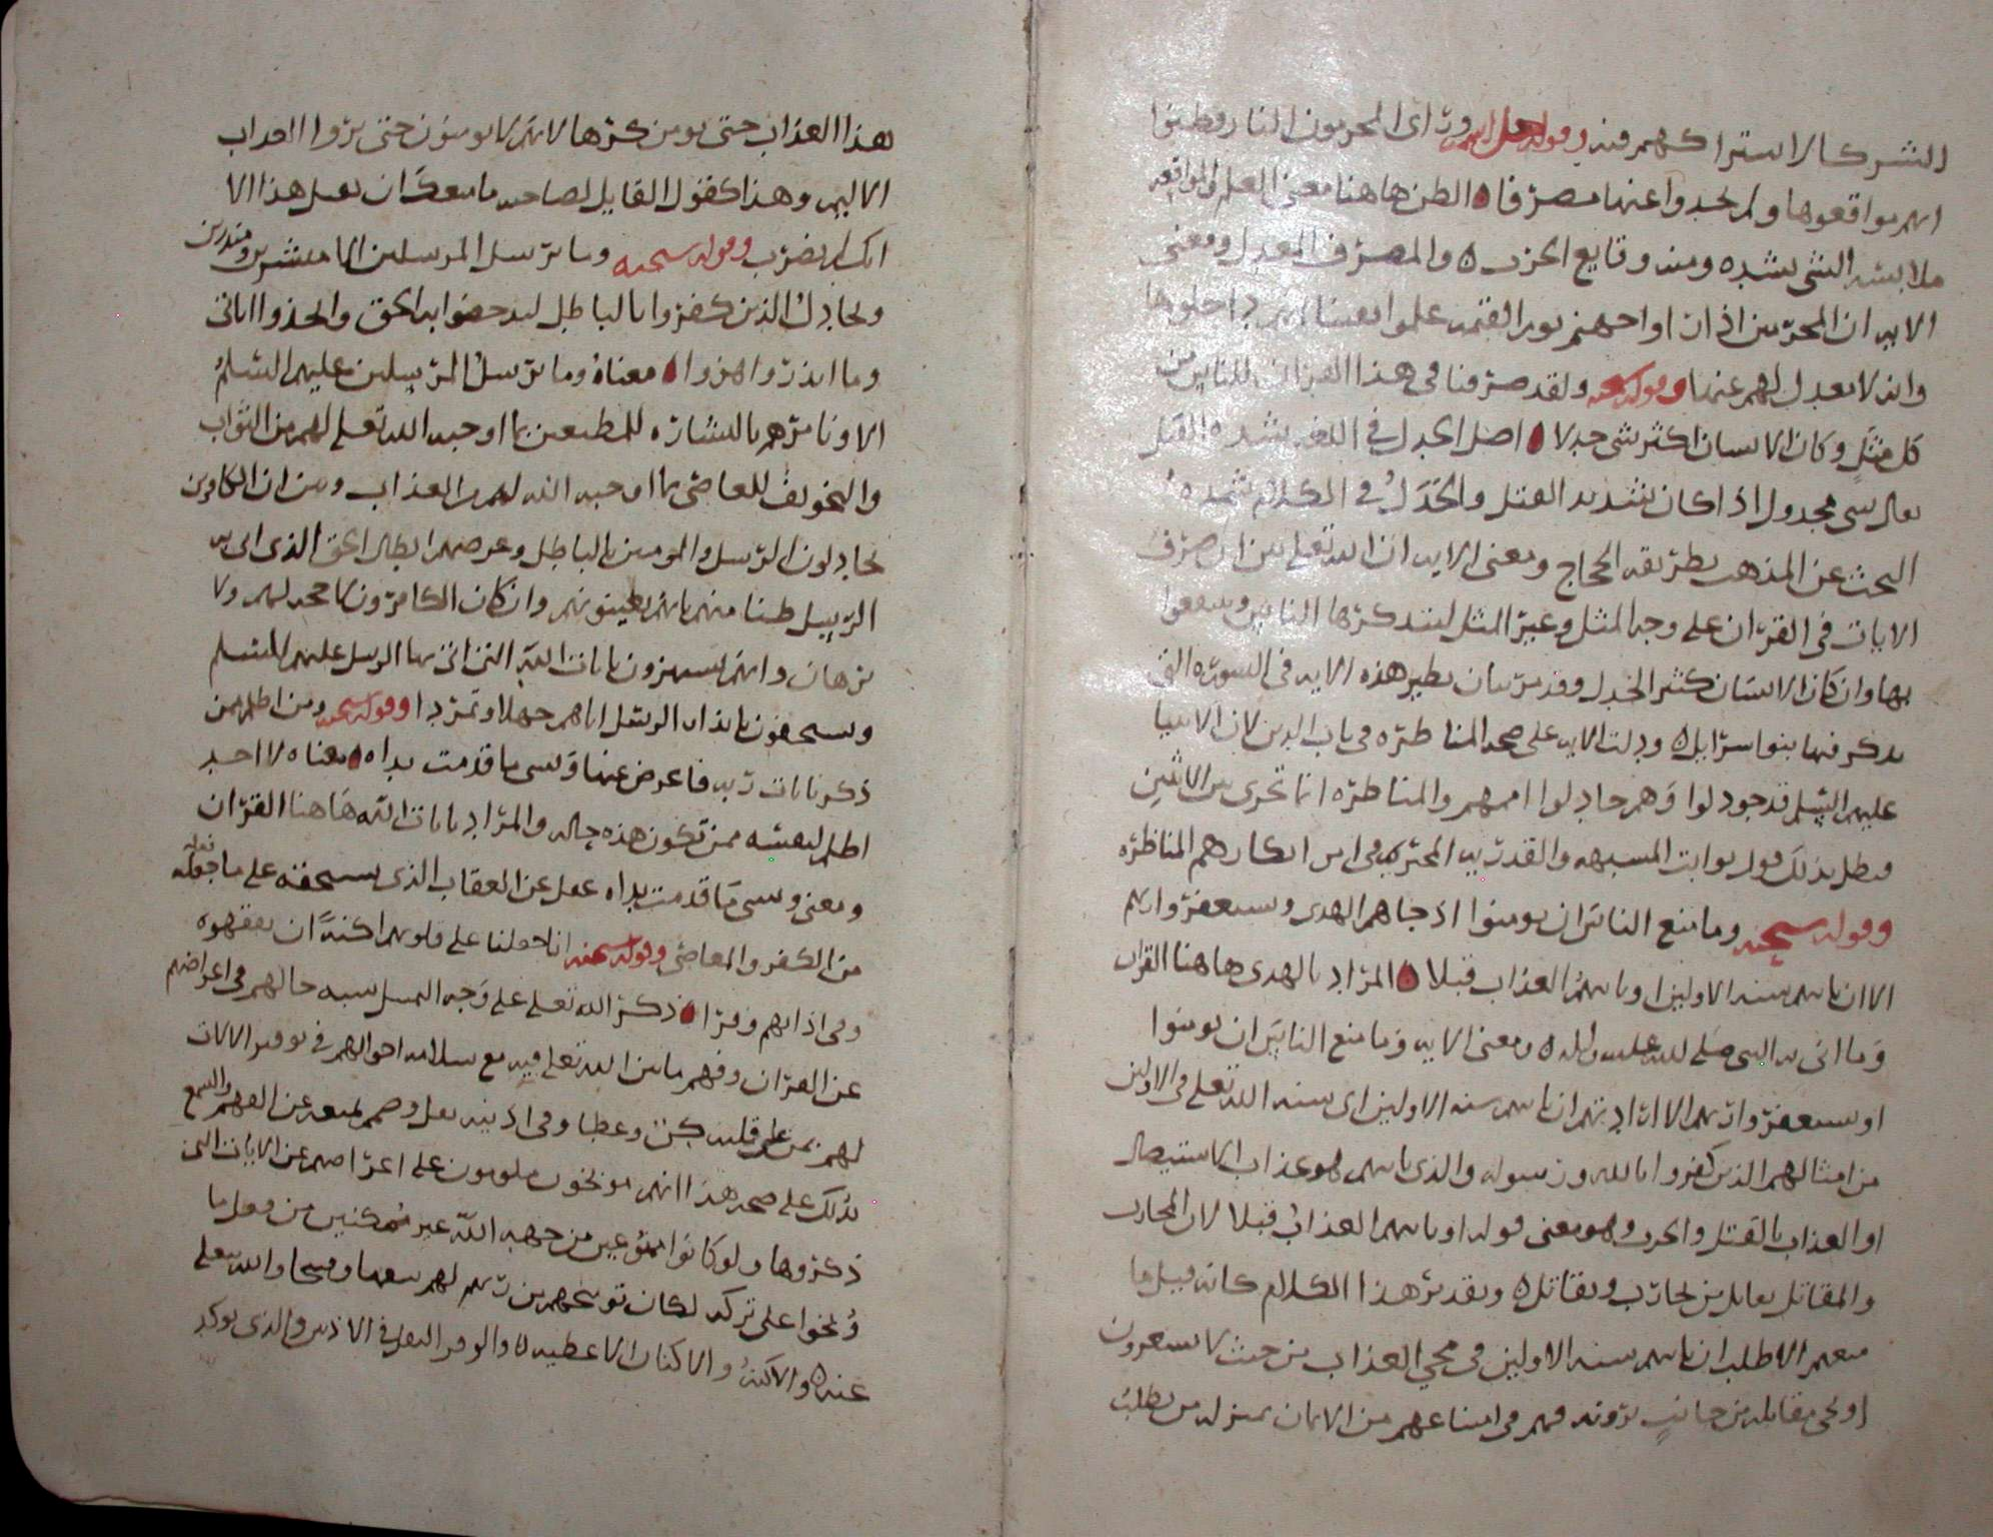 الشركا لاستراكهم فيه وقوله جل اسمه وراى المجرمون النار فظنوا
انهم مواقعوها ولم يجدوا عنها مصرفا الظن هاهنا معنى العلم والمواقعه
ملابسه الشى بشده ومنه وقايع الحرب والمصرف المعدل ومعنى
الايه ان المجرمين اذا راوا جهنم يوم القيمه علموا يقينا انهم داخلوها
وانه لا معدل لهم عنها وقوله سبحنه ولقد صرفنا فى هذا القران للناس من
كل مثل وكان الانسان اكثر شى جدلا اصل الجدل فى اللغه شده الفتل
يقال شى مجدول اذا كان شديد الفتل والجدل فى الكلام شده
البحث عن المذهب بطريقه الحجاج ومعنى الايه ان الله تعلى بين انه صرف
الايات فى القران على وجه المثل وغير المثل لتتذكرها الناس وينتفعوا
بها وان كان الانسان كثير الجدل وقد مر بيان نظير هذه الايه فى السوره التى
يذكر فيها بنو اسرايل ودلت الايه على صحه المناظره فى باب الدين لان الانبيا
عليهم السلم قد جودلوا وهم جادلوا اممهم والمناظره انما تجرى بين الاثنين
فبطل بذلك قول نوابت المشبهه والقدريه المجبره فى انكارهم المناظره
وقوله سبحنه وما منع الناس ان يومنوا اذ جاهم الهدى ويستغفروا ربهم
الا ان تاتيهم سنه الاولين او ياتيهم العذاب قبلا المراد بالهدى هاهنا القران
وما اتى به النبى صلى الله عليه واله ومعنى الايه وما منع الناس ان يومنوا
او يستغفروا ربهم الا ارادتهم ان تاتيهم سنه الاولين اى سنه الله تعلى فى الاولين
من امثالهم الذين كفروا بالله ورسوله والذى ياتيهم هو عذاب الاستيصال
او العذاب بالقتل والحرب وهو معنى قوله او ياتيهم العذاب قبلا لان المحارب
والمقاتل يقابل من يحارب ويقاتل وتقدير هذا الكلام كانه قيل ما
منعهم الا طلب ان تاتيهم سنه الاولين فى مجى العذاب من حيث لا يشعرون
او مجى مقابله من جانب يرونه فهم فى امتناعهم من الايمان بمنزله من يطلب
هذا العذاب حتى يومن كرها لانهم لا يومنون حتى يروا العذاب
الاليم وهذا كقول القايل لصاحبه ما منعك ان تعمل هذا الا
انك لم تضرب وقوله سبحنه وما نرسل المرسلين الا مبشرين ومنذرين
ويجادل الذين كفروا بالباطل ليدحضوا به الحق واتخذوا اياتى
وما انذروا هزوا معناه وما نرسل المرسلين عليهم السلم
الا ونامرهم بالبشاره للمطيعين بما اوجبه الله تعلى لهم من الثواب
والتخويف للعاصى بما اوجبه الله لهم من العذاب وبين ان الكافرين
يجادلون الرسل والمومنين بالباطل وغرضهم ابطال الحق الذى اتى به
الرسل ظنا منهم بانهم يطيقونهم وان كان الكافرون لا حجه لهم ولا
برهان وانهم يستهزون بايات الله التى اتى بها الرسل عليهم السلم
ويستخفون بانذار الرسل اياهم جهلا وتمردا وقوله سبحنه ومن اظلم ممن
ذكر بايات ربه فاعرض عنها ونسى ما قدمت يداه معناه لا احد
اظلم لنفسه ممن تكون هذه حاله والمراد بايات الله هاهنا القران
ومعنى ونسى ما قدمت يداه غفل عن العقاب الذى يستحقه على ما فعله
من الكفر والمعاصى وقوله سبحنه انا جعلنا على قلوبهم اكنه ان يفقهوه
وفى اذانهم وقرا ذكر الله تعلى على وجه المثل شبه حالهم فى اعراضهم
عن القران وفهم ما بين الله تعلى فيه مع سلامه احوالهم فى توفير الالات
لهم بمن على قلبه كن وغطا وفى اذنيه ثقل وصمم يمنعه عن الفهم والسمع
يدلك على صحه هذا انهم موبخون ملومون على اعراضهم عن الايات التى
ذكروها ولو كانوا ممنوعين من جهه الله غير ممكنين من فعل ما
وبخوا على تركه لكان توبيخهم من ربهم لهم سفها وقبيحا والله يتعلى
عنه والاكنه والاكنان الاغطيه والوقر الثقل فى الاذن والذى يوكد